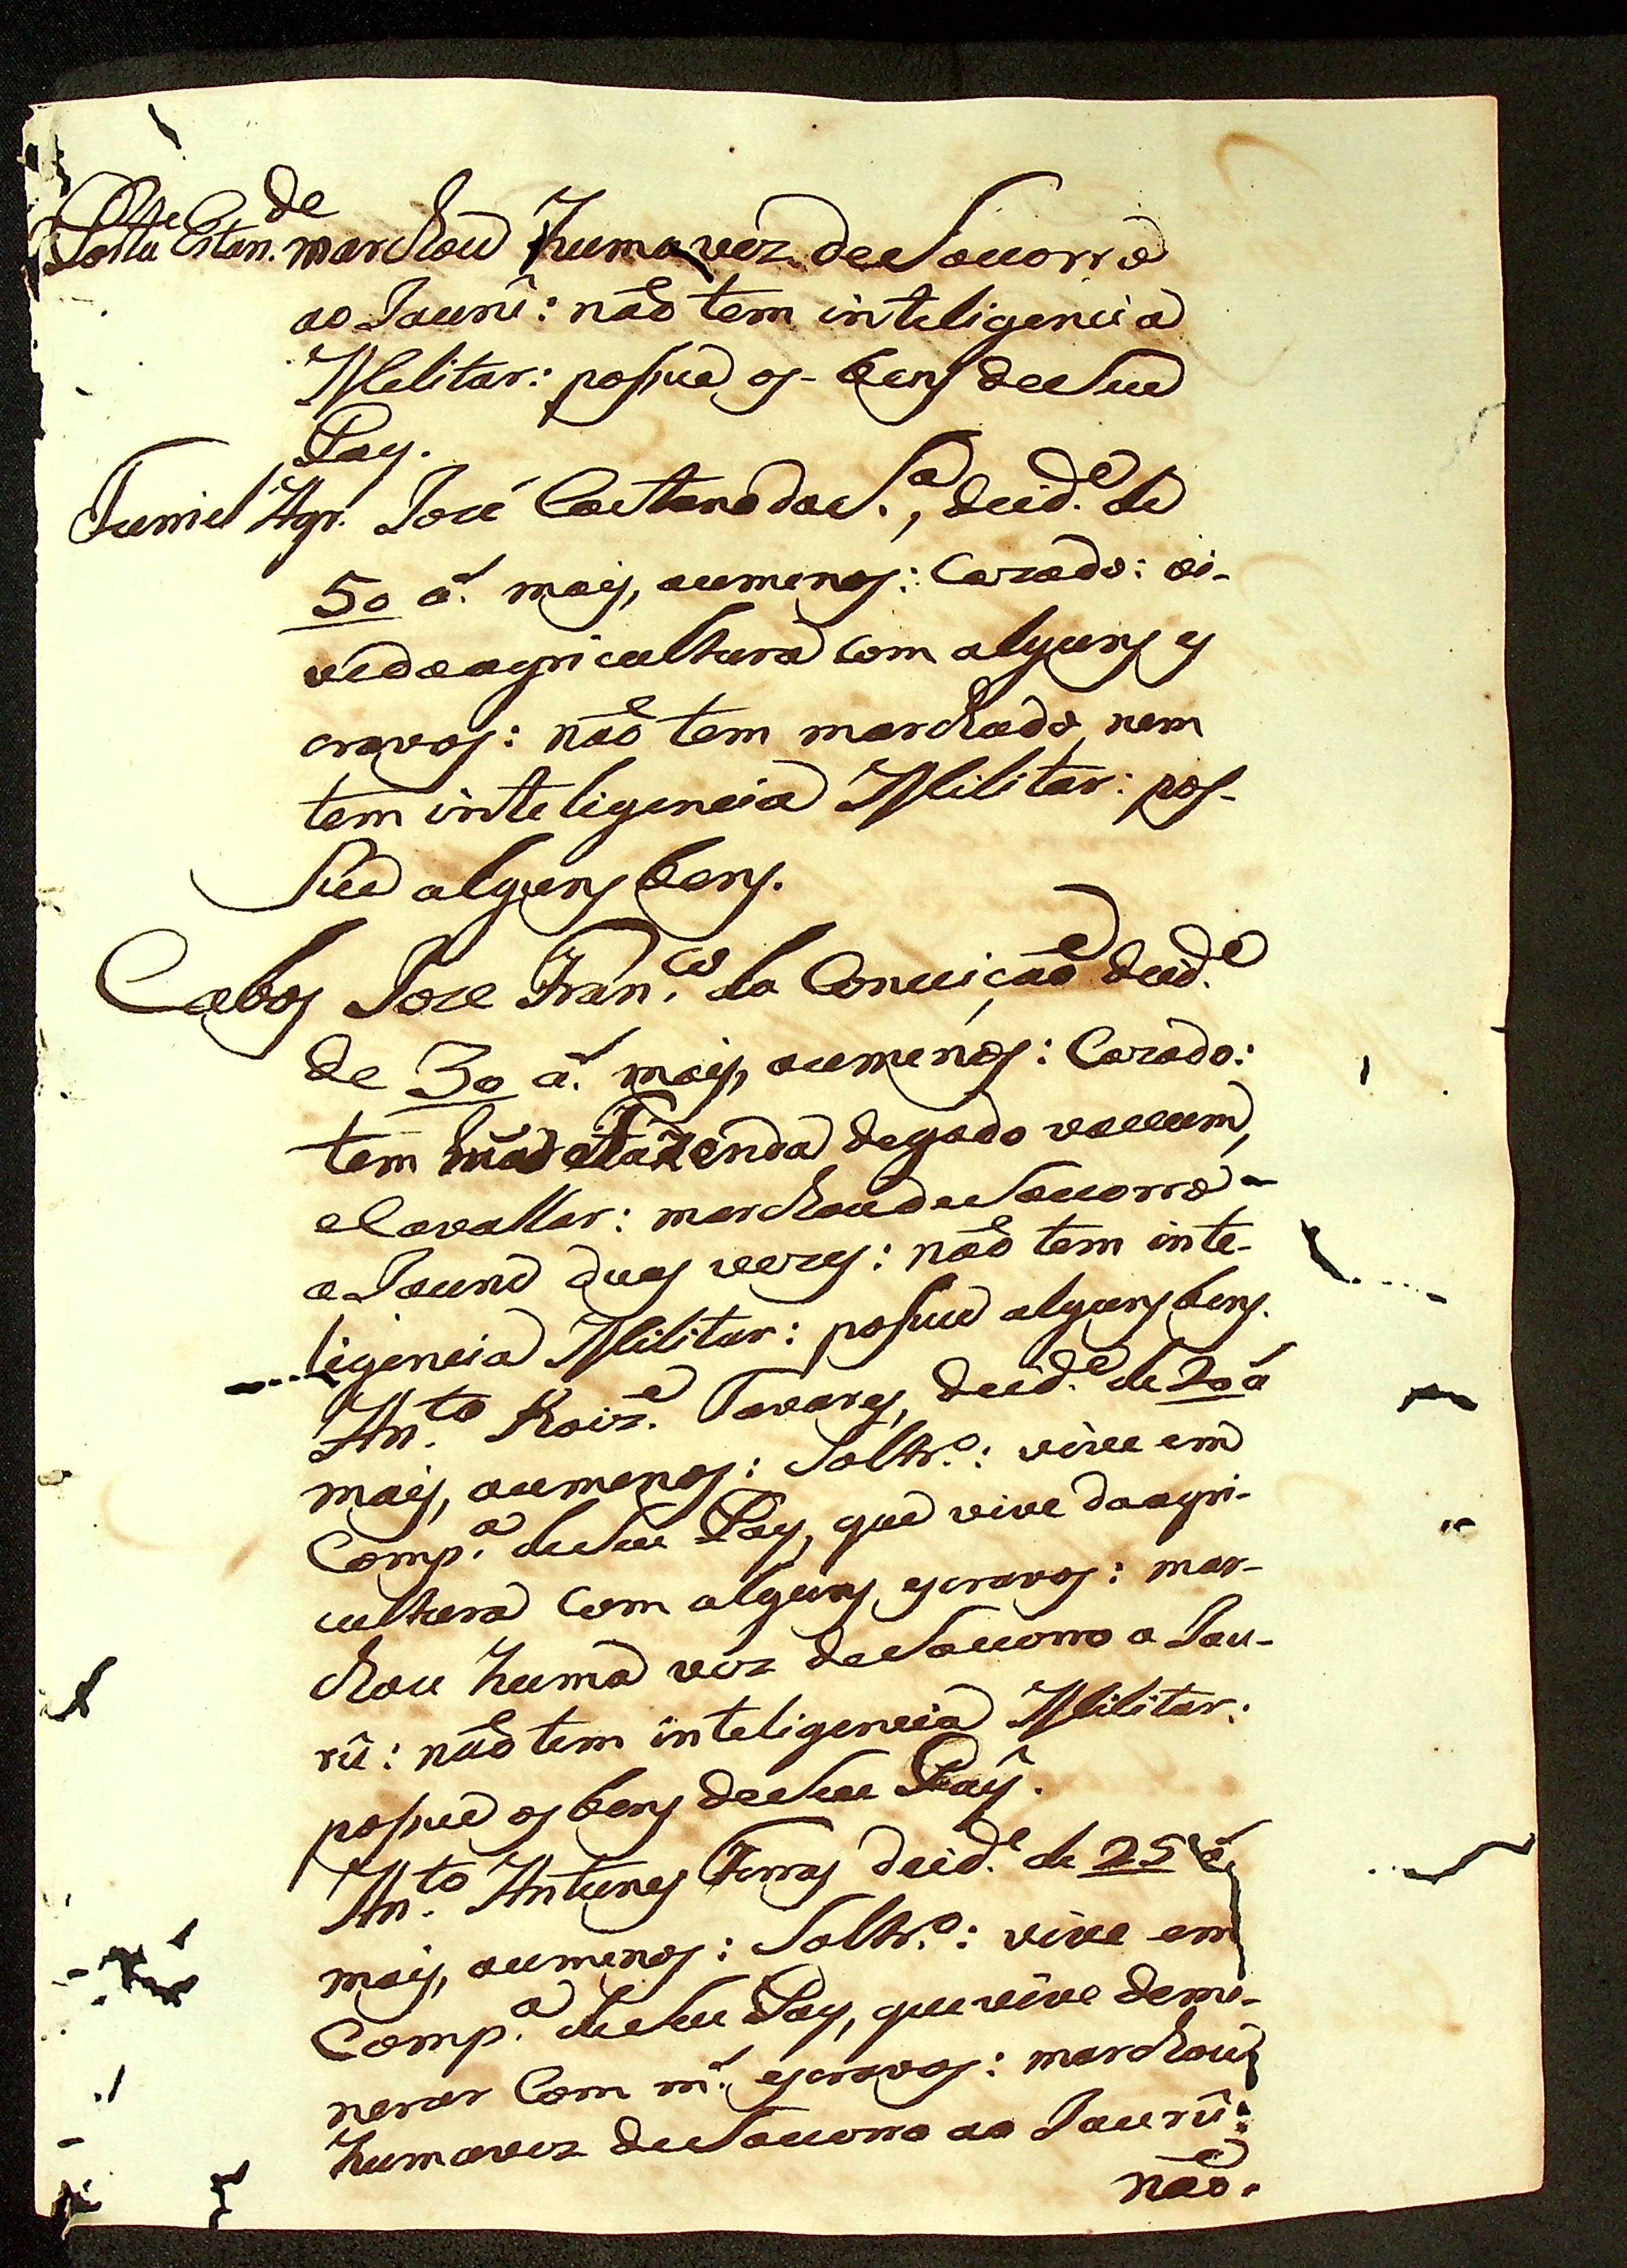 de
Porta Estan. marchou huma vez de Socorro
ao Jaurú: não tem inteligencia
Melitar: possue os bens de Seu
Pay.
Furriel Agr. José Caetano da S.ª, de id.e de
50 a. mais, ou menos: Cazado: vi-
ve da agricultura com alguns es
cravos: não tem marchado, nem
tem inteligencia Militar: pos-
Sue alguns bens.
Cabos Joze Fran.co da Conceição de id.e
de 30 a. mais, ou menos: Cazado:
tem hũa Fazenda de gado vaccum,
e Cavallar: marchou de Socorro
a Jauru duas vezes: não tem inte-
ligencia Militar: possue alguns bens.
An.to Roiz. Tavares, de id.e de 20 a
mais, ou menos: Soltr.o: vive em
Comp.a de Seu Pay, que vive da agri-
cultura com alguns escravos: mar-
chou huma vez de Socorro a Jau-
rú: não tem inteligencia Militar:
possue os bens de Seu Pay.
An.to Antunes Ferras de id.e de 25 a.
mais, ou menos: Soltr.o: vive em
Comp.a de Seu Pay, que vive de mi-
nerar Com m.s escravos: marchou
huma vez de Socorro ao Jaurú:
não.